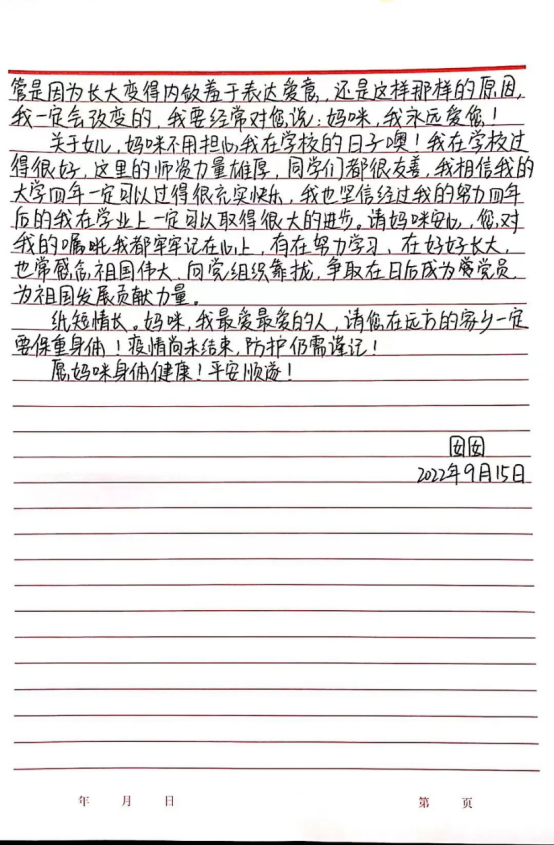 管是因为长大变得内敛羞于表达爱意，还是这样那样的原因，
我一定会改变的，我要经常对您说：妈咪，我永远爱您！
关于女儿，妈咪不用担心我在学校的日子噢！我在学校过
得很好，这里的师资力量雄厚，同学们都很友善，我相信我的
大学四年一定可以过得很充实快乐，我也坚信经过我的努力四年
后的我在学业上一定可以取得很大的进步。请妈咪安心，您对
我的嘱咐我都牢牢记在心上，有在努力学习、在好好长大，
也常感念祖国伟大、向党组织靠拢，争取在日后成为党员，
为祖国发展贡献力量。
纸短情长。妈咪，我最爱最爱的人，请您在远方的家乡一定
要保重身体！疫情尚未结束，防护仍需谨记！
愿妈咪身体健康！平安顺遂！
囡囡
2022年9月15日
年 月 日
第 页